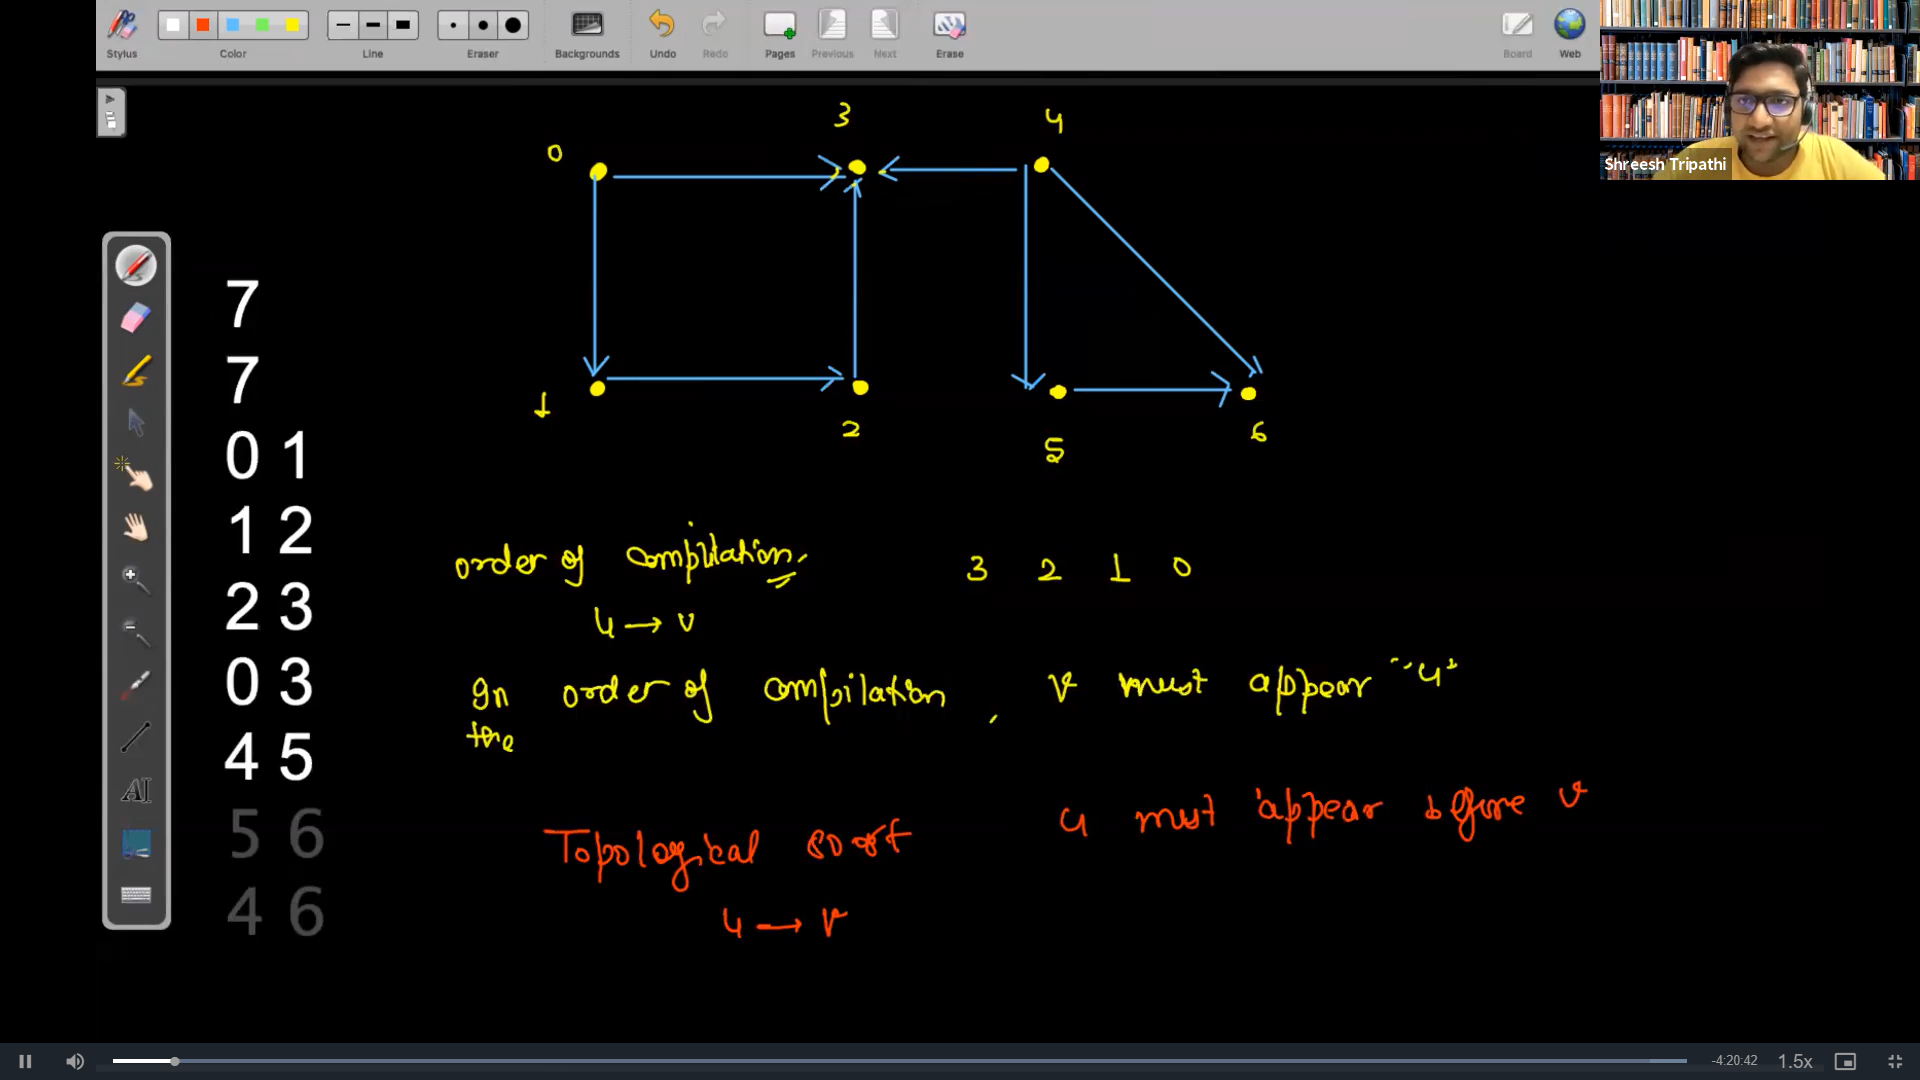 Stylus Color Line Eraser Backgrounds Undo Redo Pages Previous Next Erase Board Web
Shreesh Tripathi
3 4
0
1
2
5 6
7
7
0 1
1 2
2 3
0 3
4 5
5 6
4 6
order of compilation. 3 2 1 0
u → v
In order of compilation, v must appear "u"
the
Topological sort u must appear before v
u → v
-4:20:42 1.5x